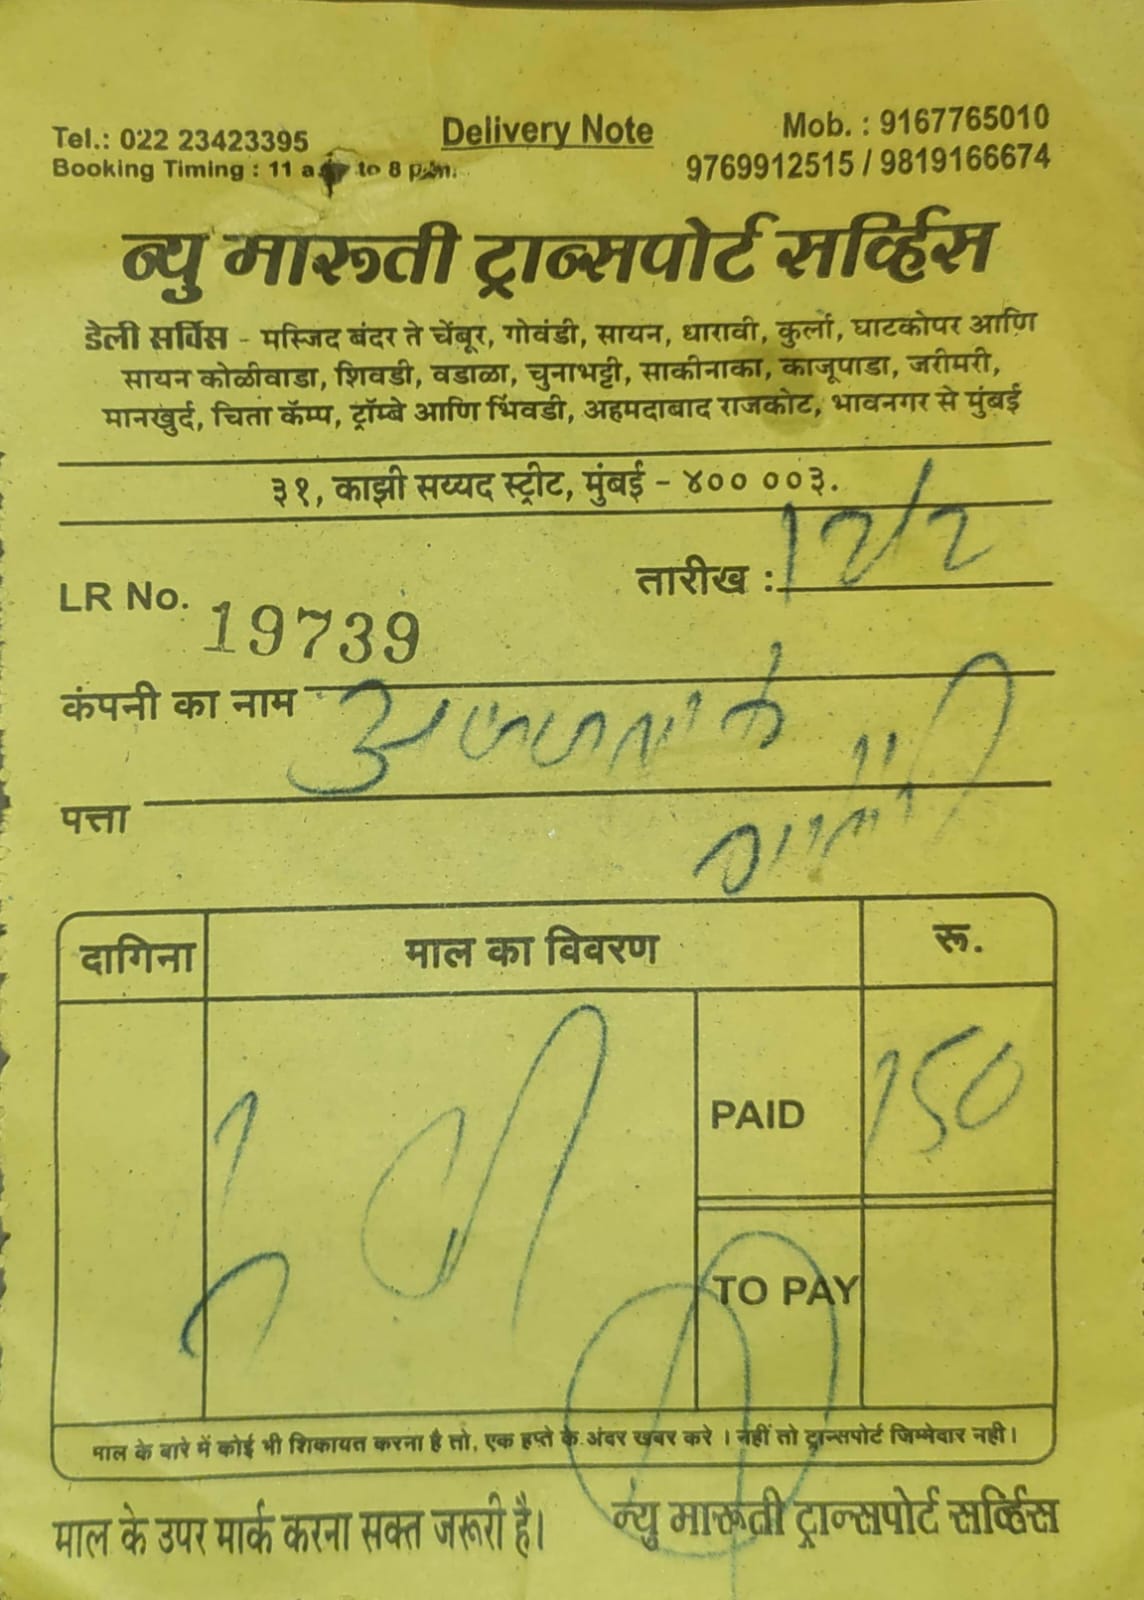 Tel.: 022 23423395 Delivery Note Mob. : 9167765010
Booking Timing : 11 a.m. to 8 p.m. 9769912515 / 9819166674
न्यु मारूती ट्रान्सपोर्ट सर्व्हिस
डेली सर्विस - मस्जिद बंदर ते चेंबूर, गोवंडी, सायन, धारावी, कुर्ला, घाटकोपर आणि
सायन कोळीवाडा, शिवडी, वडाळा, चुनाभट्टी, साकीनाका, काजूपाडा, जरीमरी,
मानखुर्द, चिता कॅम्प, ट्रॉम्बे आणि भिवडी, अहमदाबाद राजकोट, भावनगर से मुंबई
३१, काझी सय्यद स्ट्रीट, मुंबई - ४०० ००३.
LR No. 19739 तारीख : 12/2
कंपनी का नाम
पत्ता
दागिना माल का विवरण रू.
PAID 150
TO PAY
माल के बारे में कोई भी शिकायत करना है तो, एक हप्ते के अंदर खबर करे । नहीं तो ट्रान्सपोर्ट जिम्मेदार नही।
माल के उपर मार्क करना सक्त जरूरी है। न्यु मारूती ट्रान्सपोर्ट सर्व्हिस